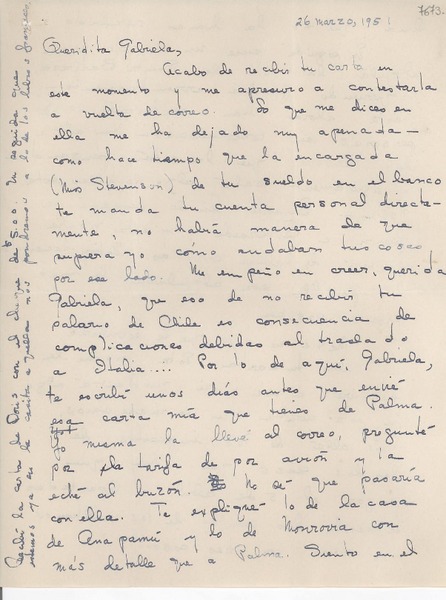 7673.
26 marzo, 1951
Queridita Gabriela,
Acabo de recibir tu carta en
este momento y me apresuro a contestarla
a vuelta de correo. Lo que me dices en
ella me ha dejado muy apenada —
como hace tiempo que la encargada
(Miss Stevenson) de tu sueldo en el banco
te manda tu cuenta personal directa-
mente, no habrá manera de que
supiera yo cómo andaban tus cosas
por ese lado. Me empeño en creer, querida
Gabriela, que eso de no recibir tu
salario de Chile es consecuencia de
complicaciones debidas al traslado
a Italia.... Por lo de aquí, Gabriela,
te escribí unos días antes que envié
esa carta mía que tienes de Palma.
Yo misma la llevé al correo, pregunté
por la tarifa de por avión y la
eché al buzón. No sé que pasaría
con ella. Te expliqué lo de la casa
de Anapamú y lo de Monrovia con
más detalle que a Palma. Siento en el
Recibí la carta de Doris con el cheque de $500. En seguida que
a los libros